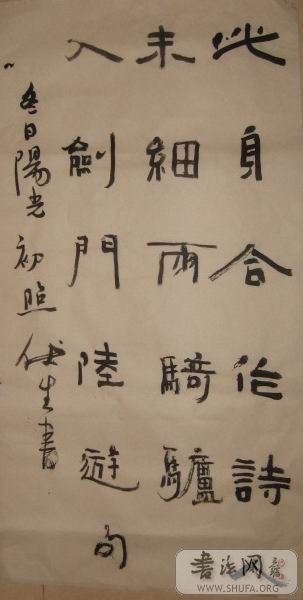 此身合作詩
未細雨騎驢
入劍門陸遊句
冬日陽光初照 生書
書法网
WWW.SHUFA.ORG